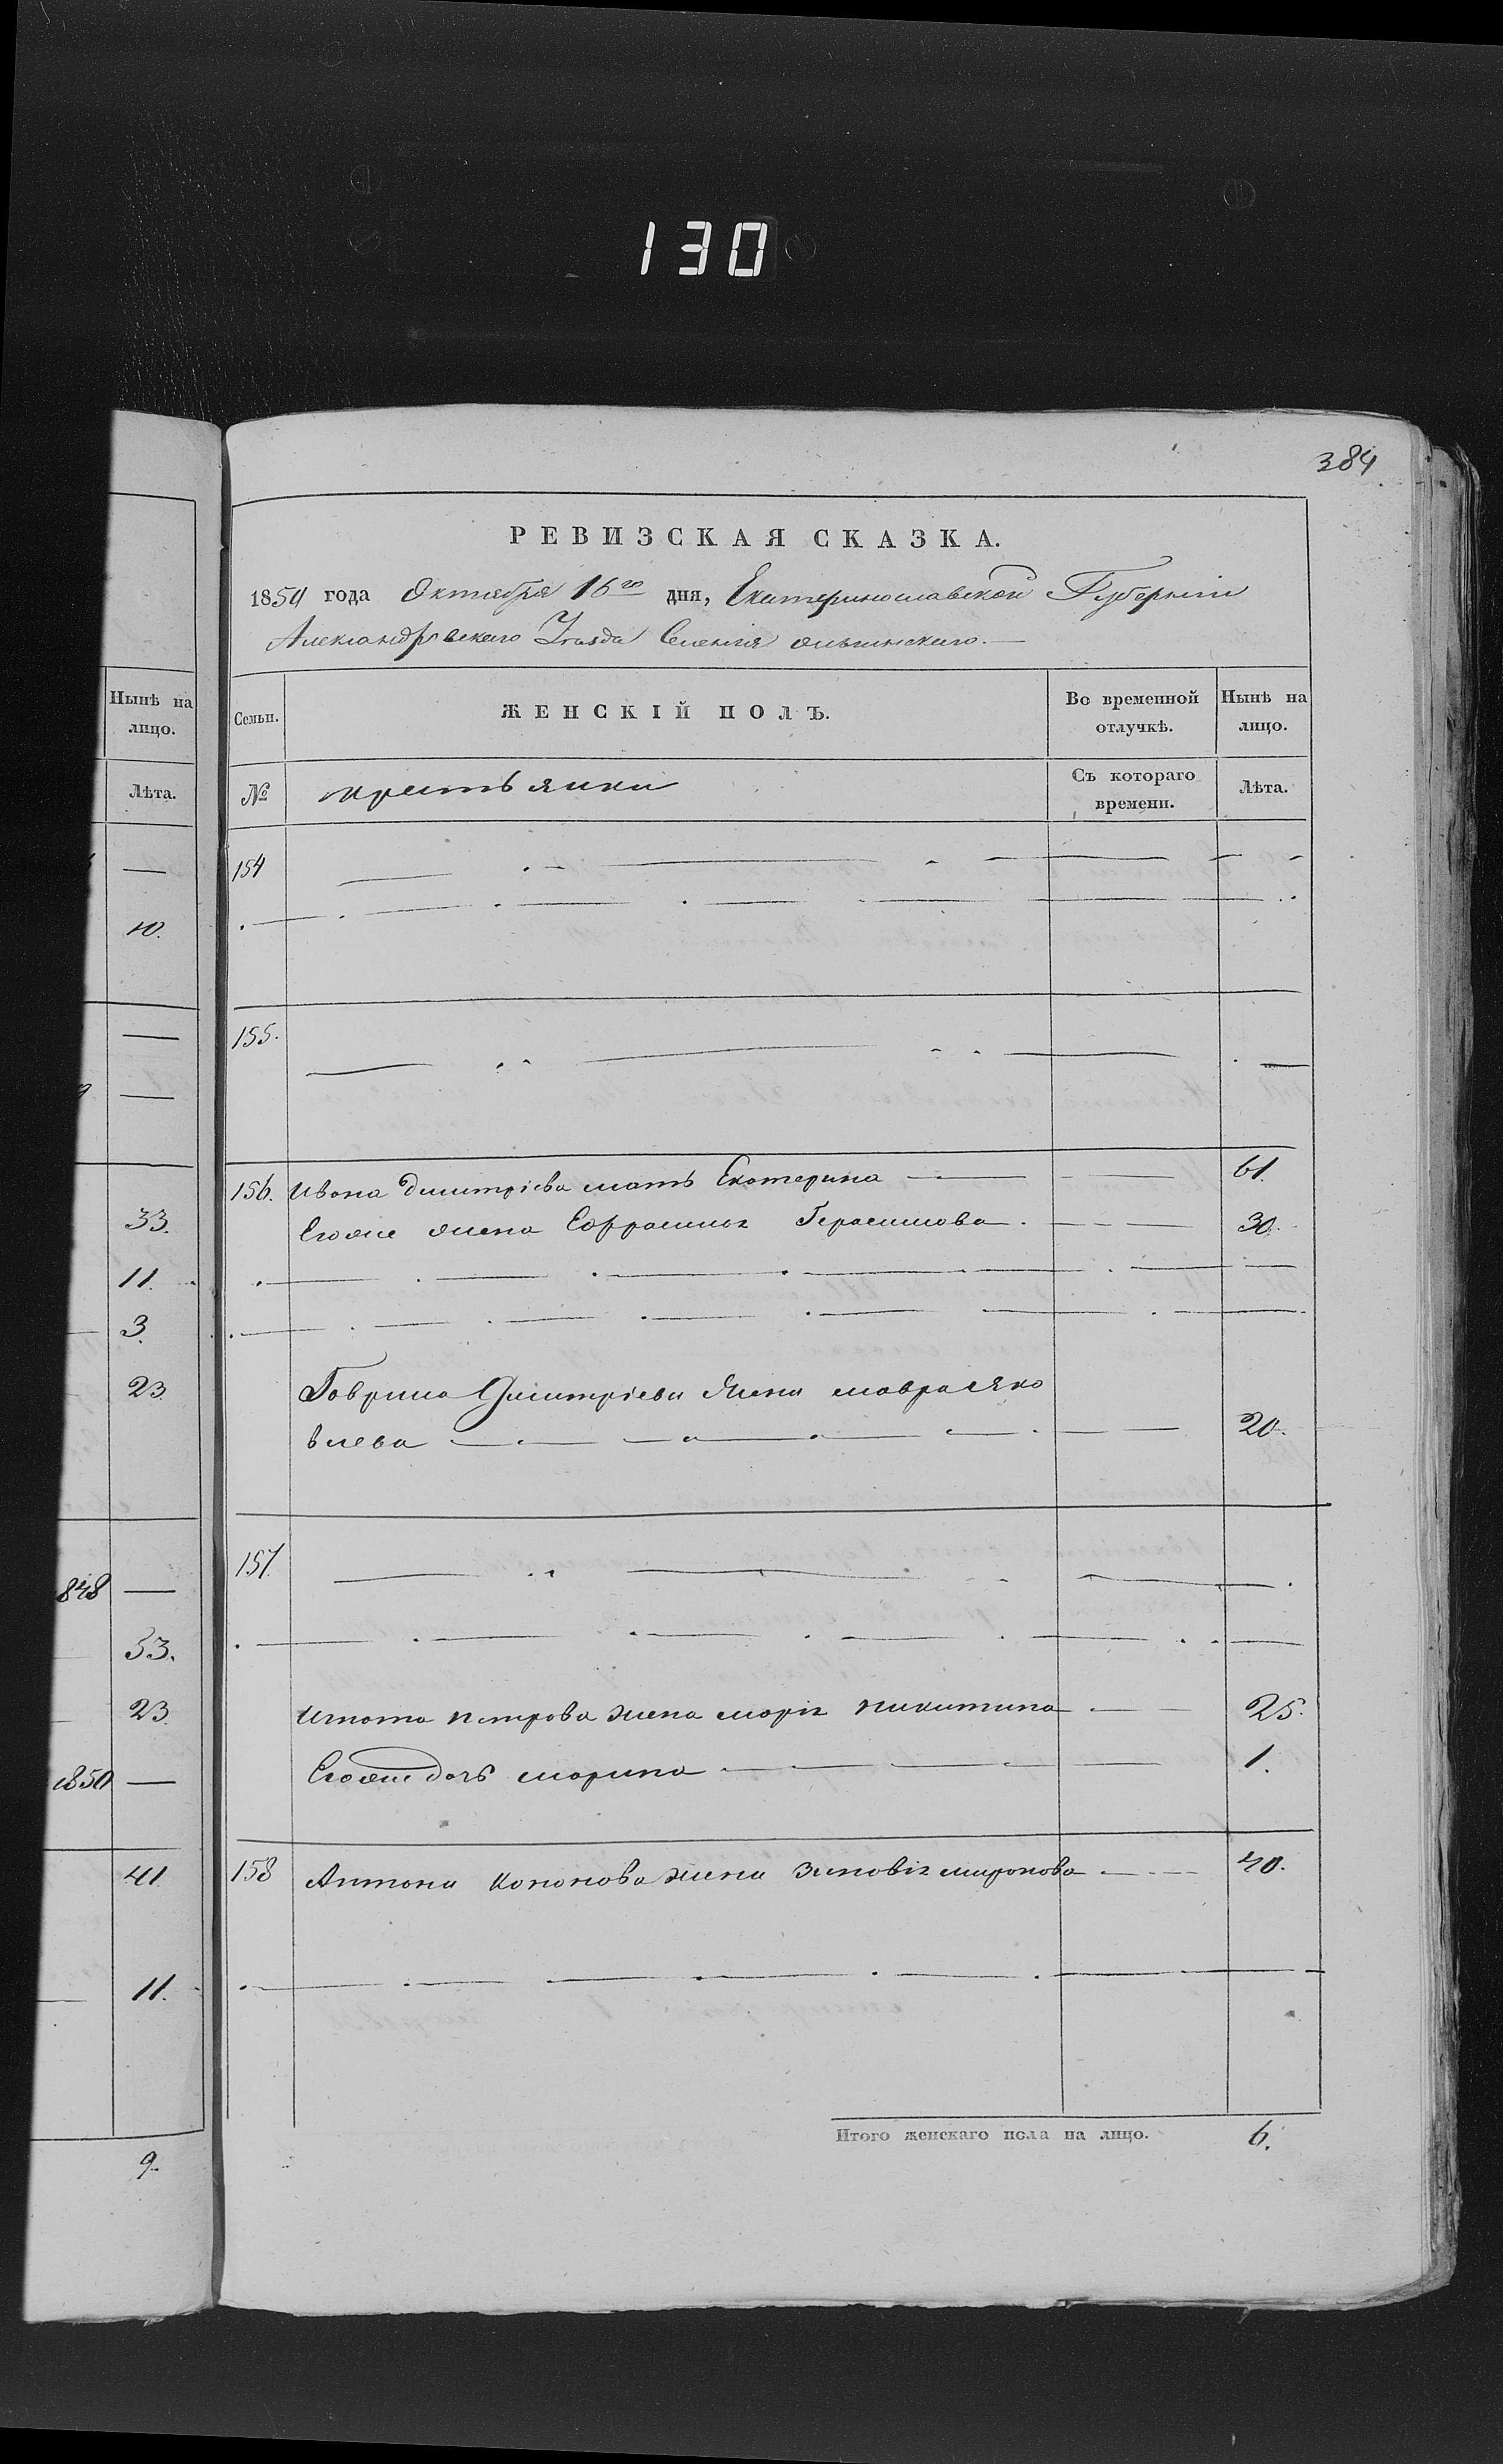 130
384
РЕВИЗСКАЯ СКАЗКА.
1854 года Октября 16го дня, Екатеринославской Губерніи
Александровскаго Уезда Селенія Ольгинскаго.
Нынѣ на
лицо.
Лѣта.
10.
33.
11.
3.
23
848
53.
23
1850
41
11.
9.
Семьи. ЖЕНСКІЙ ПОЛЪ. Во временной отлучкѣ. Нынѣ на лицо.
№ крестьянки Съ котораго времени. Лѣта.
154
155.
156. Ивана Дмитріева мать Екатерина 61.
Егоже жена Ефрасинія Герасимова 30.
Гаврила Дмитріева жена мавра яко
влева 20.
157.
Игната петрова жена марія никитина 25.
Егоже дочь марина 1.
158 Антона Кононова жена зиновія миронова 40.
Итого женскаго пола на лицо. 6.